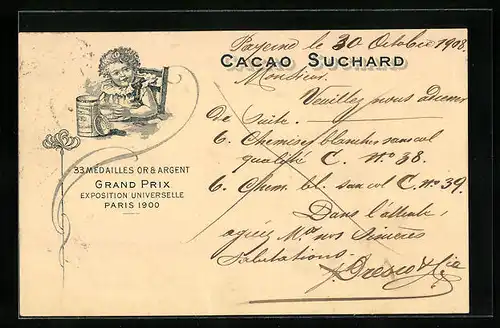 Payerne le 30 Octobre 1908.
CACAO SUCHARD
Monsieur.
Veuillez nous adresser
de suite.
6. Chemises blanches sans col
qualité C. No 38.
6. Chem. bl. san col C. no 39.
Dans l'attente,
agréez Mr nos sincères
salutations.
& Cie
33 MÉDAILLES OR & ARGENT
GRAND PRIX
EXPOSITION UNIVERSELLE
PARIS 1900